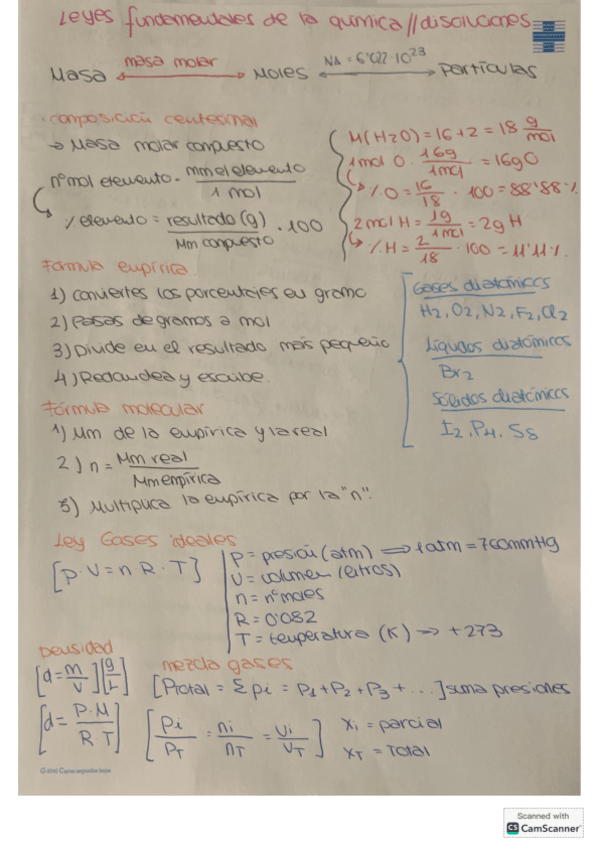 Leyes fundamentales de la química//disoluciones
Masa masa molar Moles NA = 6'022·10^23 Partículas
composición centesimal
→ Masa molar compuesto
nº mol elemento · mm el elemento / 1 mol
% elemento = resultado (g) / Mm compuesto · 100
M(H2O) = 16+2 = 18 g/mol
1 mol O · 16g / 1 mol = 16g O
% O = 16/18 · 100 = 88'88 %
2 mol H = 1g / 1 mol = 2g H
% H = 2/18 · 100 = 11'11 %
Fórmula empírica
1) Conviertes los porcentajes en gramo
2) Pasas de gramos a mol
3) Divide en el resultado más pequeño
4) Redondea y escribe.
Gases diatómicos
H2, O2, N2, F2, Cl2
Líquidos diatómicos
Br2
Sólidos diatómicos
I2, P4, S8
Fórmula molecular
1) Mm de la empírica y la real
2) n = Mm real / Mm empírica
3) Multiplica la empírica por la "n".
Ley Gases ideales
[P·V = n·R·T]
P = presión (atm) ⟹ 1 atm = 760mmHg
V = volumen (litros)
n = nº moles
R = 0'082
T = temperatura (K) → +273
Densidad
[d = m/V] [g/L]
[d = P·M / R T]
mezcla gases
[Ptotal = Σ pi = P1 + P2 + P3 + ...] suma presiones
[Pi/PT = ni/nT = Vi/VT] xi = parcial
xT = Total
Scanned with
CS CamScanner